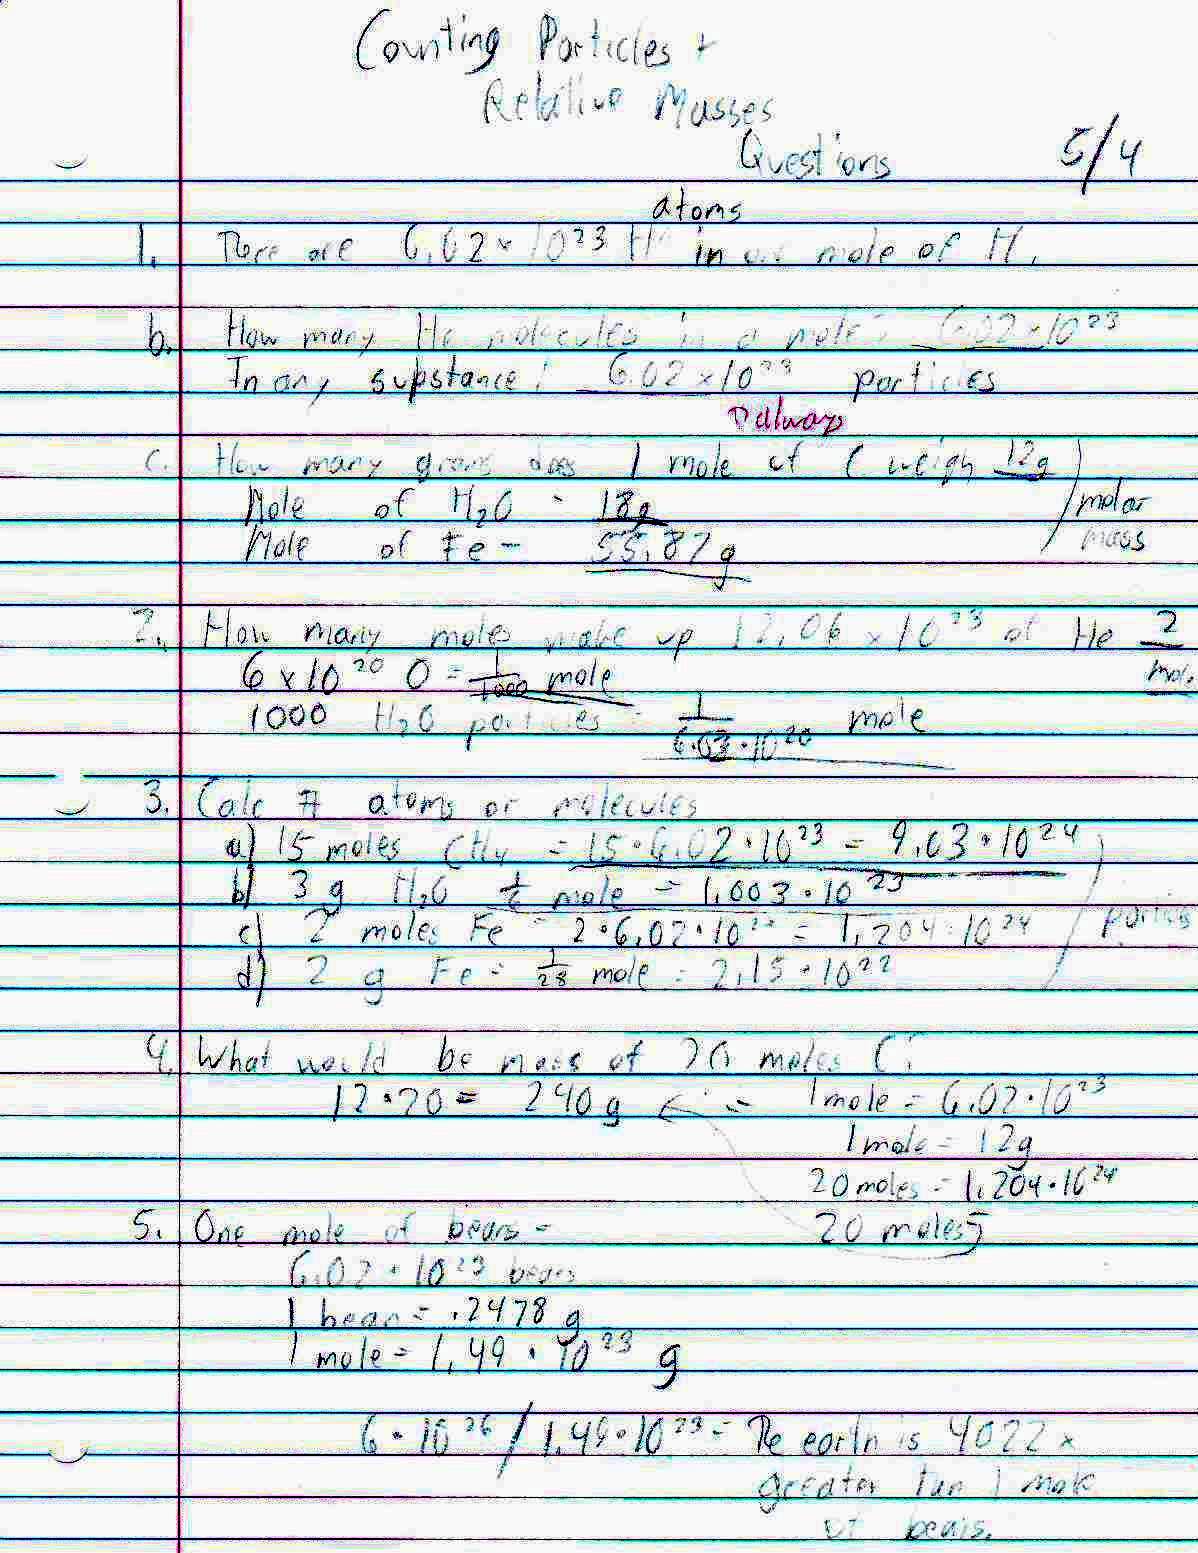 Counting Particles +
Relative Masses
Questions 5/4
atoms
1. There are 6.02 × 10²³ H in one mole of H.
b. How many He molecules in a mole? 6.02 × 10²³
In any substance? 6.02 × 10²³ particles
always
c. How many grams does 1 mole of C weigh 12g
Mole of H₂O - 18g molar
Mole of Fe - 55.87g mass
2. How many moles make up 12.06 × 10²³ of He 2
6 × 10²⁰ O = 1/1000 mole mole
1000 H₂O particles = 1/6.03·10²⁰ mole
3. Calc # atoms or molecules
a) 15 moles CH₄ = 15·6.02·10²³ = 9.03·10²⁴
b) 3 g H₂O 1/6 mole = 1.003·10²³
c) 2 moles Fe = 2·6.02·10²³ = 1.204·10²⁴
d) 2 g Fe = 1/28 mole = 2.15·10²²
4. What would be mass of 20 moles C?
12·20 = 240g ← = 1 mole = 6.02·10²³
1 mole = 12g
20 moles = 1.204·10²⁴
5. One mole of beans = 20 moles
6.02·10²³ beans
1 bean = .2478 g
1 mole = 1.49·10²³ g
6·10²⁶ / 1.49·10²³ = The earth is 4022 ×
greater tan 1 mole
of beans.